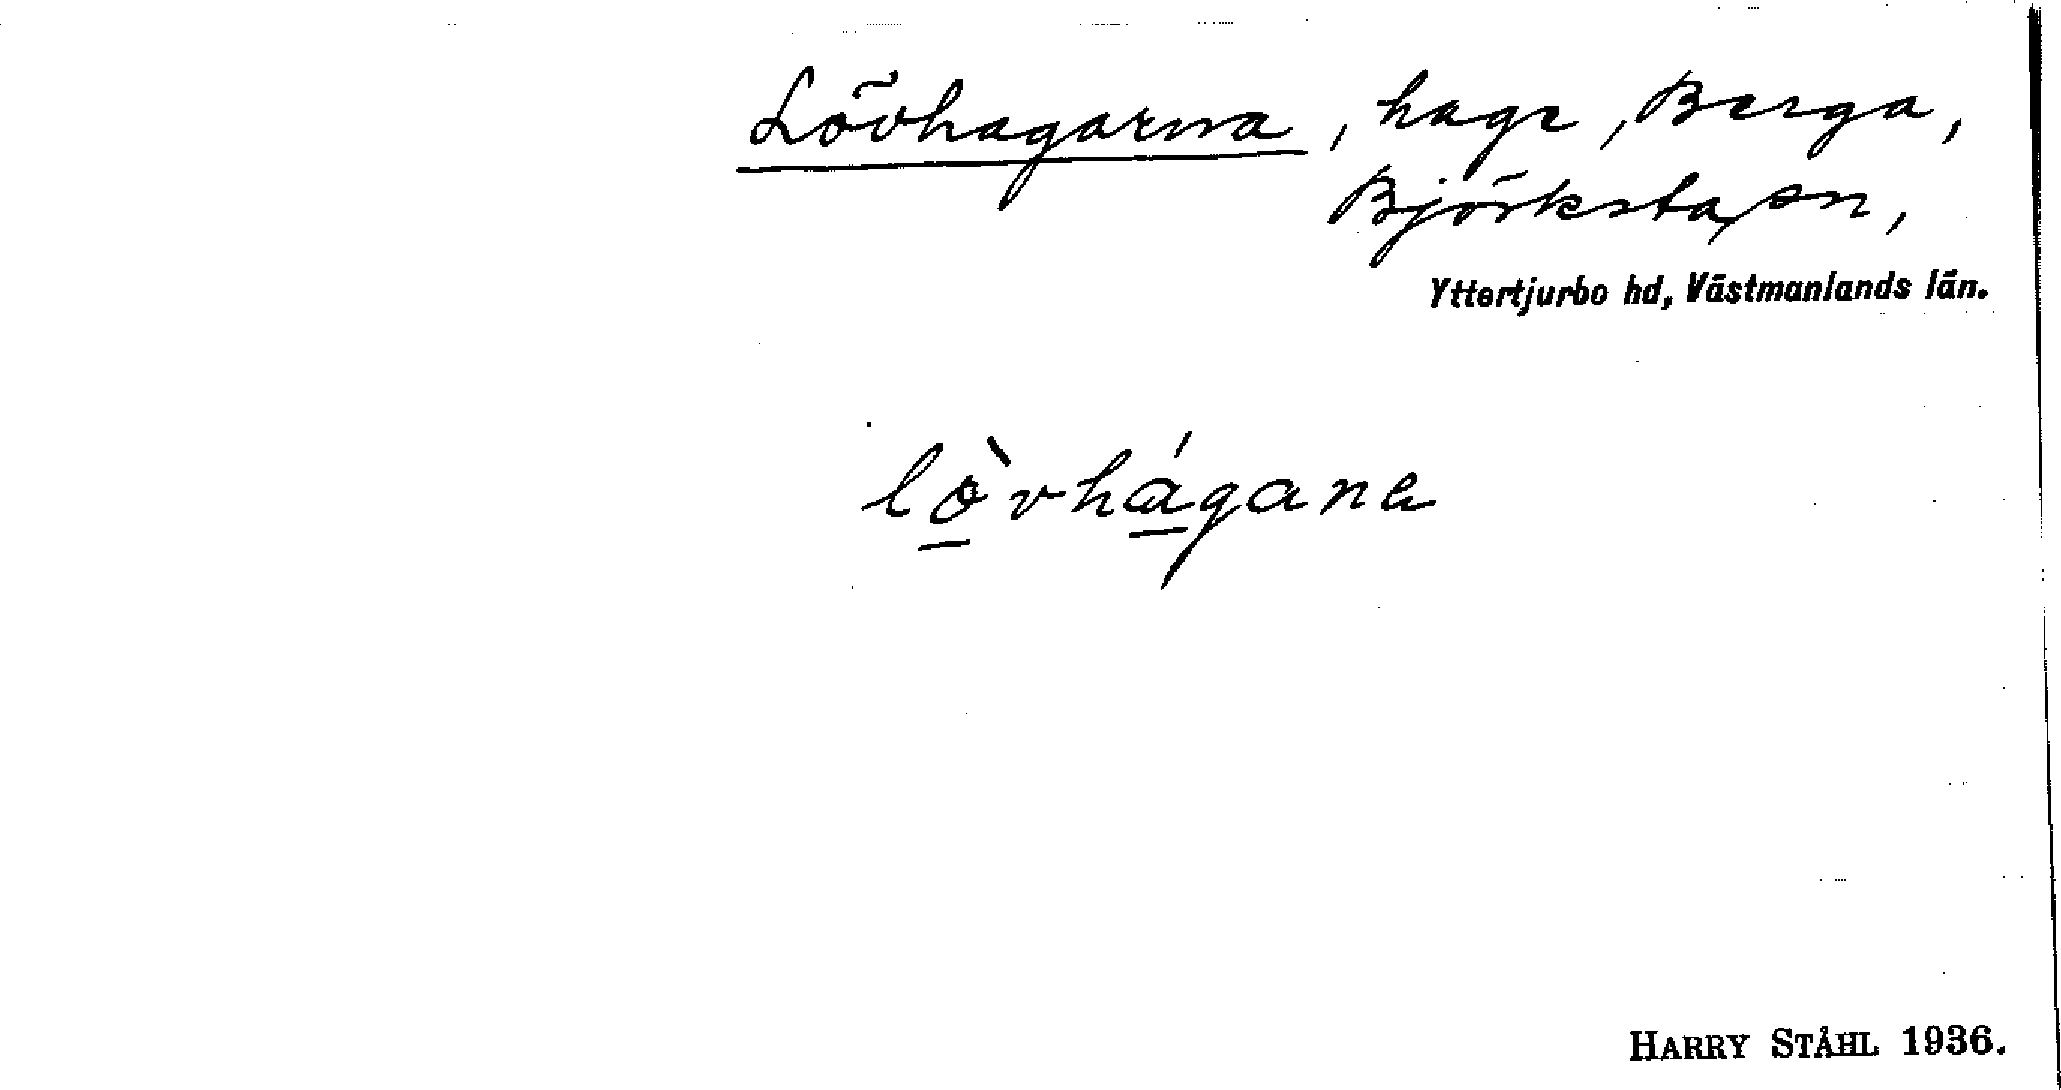 Lövhagarna, hage, Berga,
Björksta sn,
Yttertjurbo hd, Västmanlands län.
lòvhágana
HARRY STÅHL 1936.